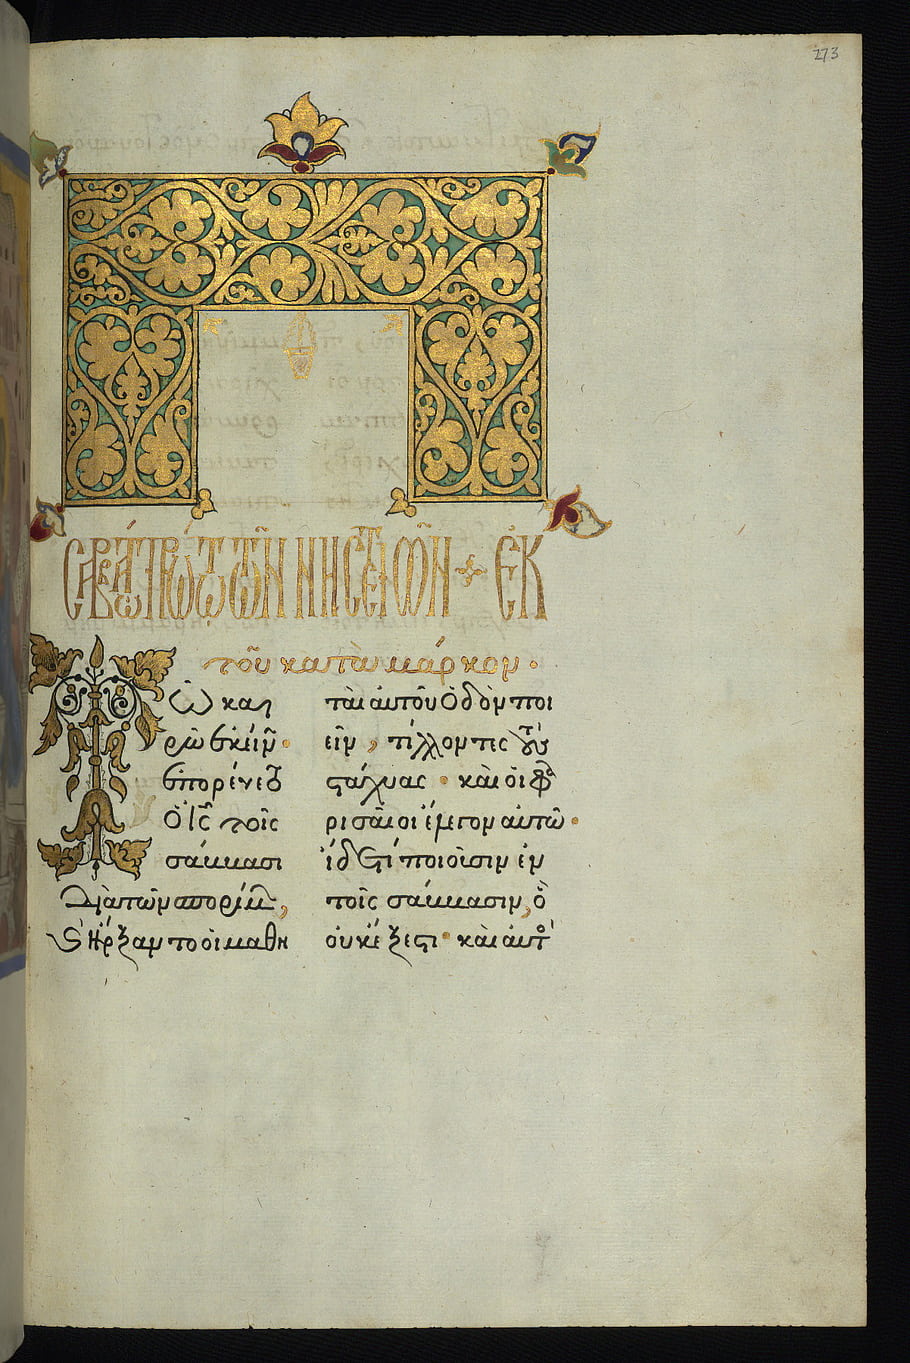 273
ΣΑΒΒΆΤω ΠΡΏΤω ΤΩ͂Ν ΝΗΣΤΕΙΩ͂Ν ⁘ ἘΚ
τοῦ κατὰ μάρκον ·
ῶ και
ρῶ ἐκείν ·
ἐπορέυεὸ
ὁ ις τοῖς
σάββασι
διὰ τῶν σπορίμ,
ϛ ἤρξαντο οἱ μαθη
ταὶ αὐτοῦ ὁδὸν ποι
εῖν, τίλλοντες τοὺς
στάχυας · καὶ οἱ φα
ρισαῖοι ἔλεγον αὐτῶ ·
ἴδε τί ποιοῖσιν ἐν
τοῖς σάββασιν, ὃ
οὐκ ἔξεστι · καὶ αὐτὸ